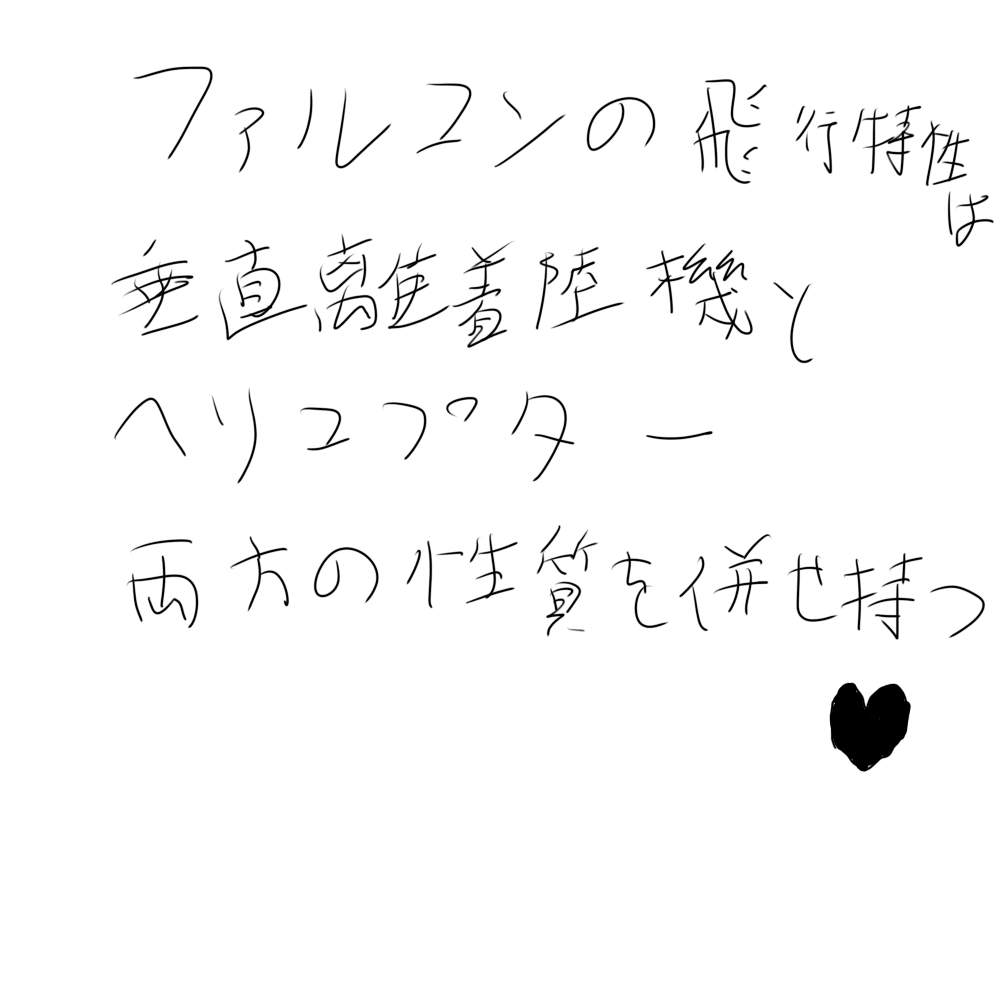 ファルコンの飛行特性は
垂直離着陸機と
ヘリコプター
両方の性質を併せ持つ
♥